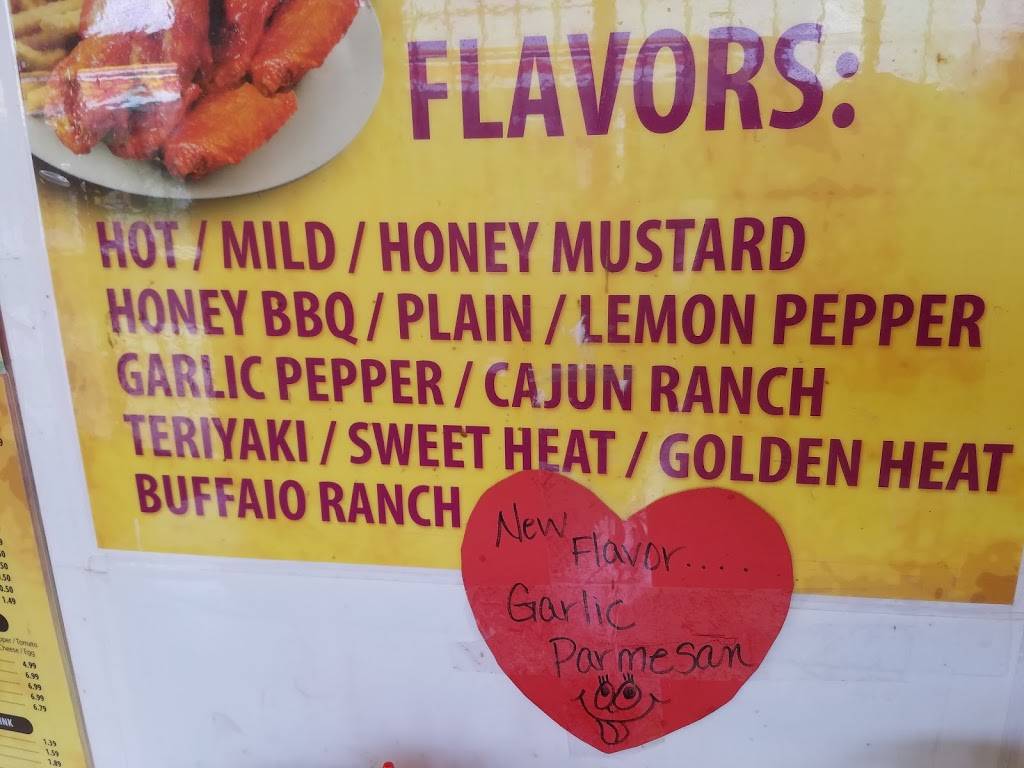 FLAVORS:
HOT / MILD / HONEY MUSTARD
HONEY BBQ / PLAIN / LEMON PEPPER
GARLIC PEPPER / CAJUN RANCH
TERIYAKI / SWEET HEAT / GOLDEN HEAT
BUFFAIO RANCH
New
Flavor....
Garlic
Parmesan
.50
1.49
/ Tomato
Cheese / Egg
4.99
6.99
6.99
6.99
6.79
1.39
1.59
1.89